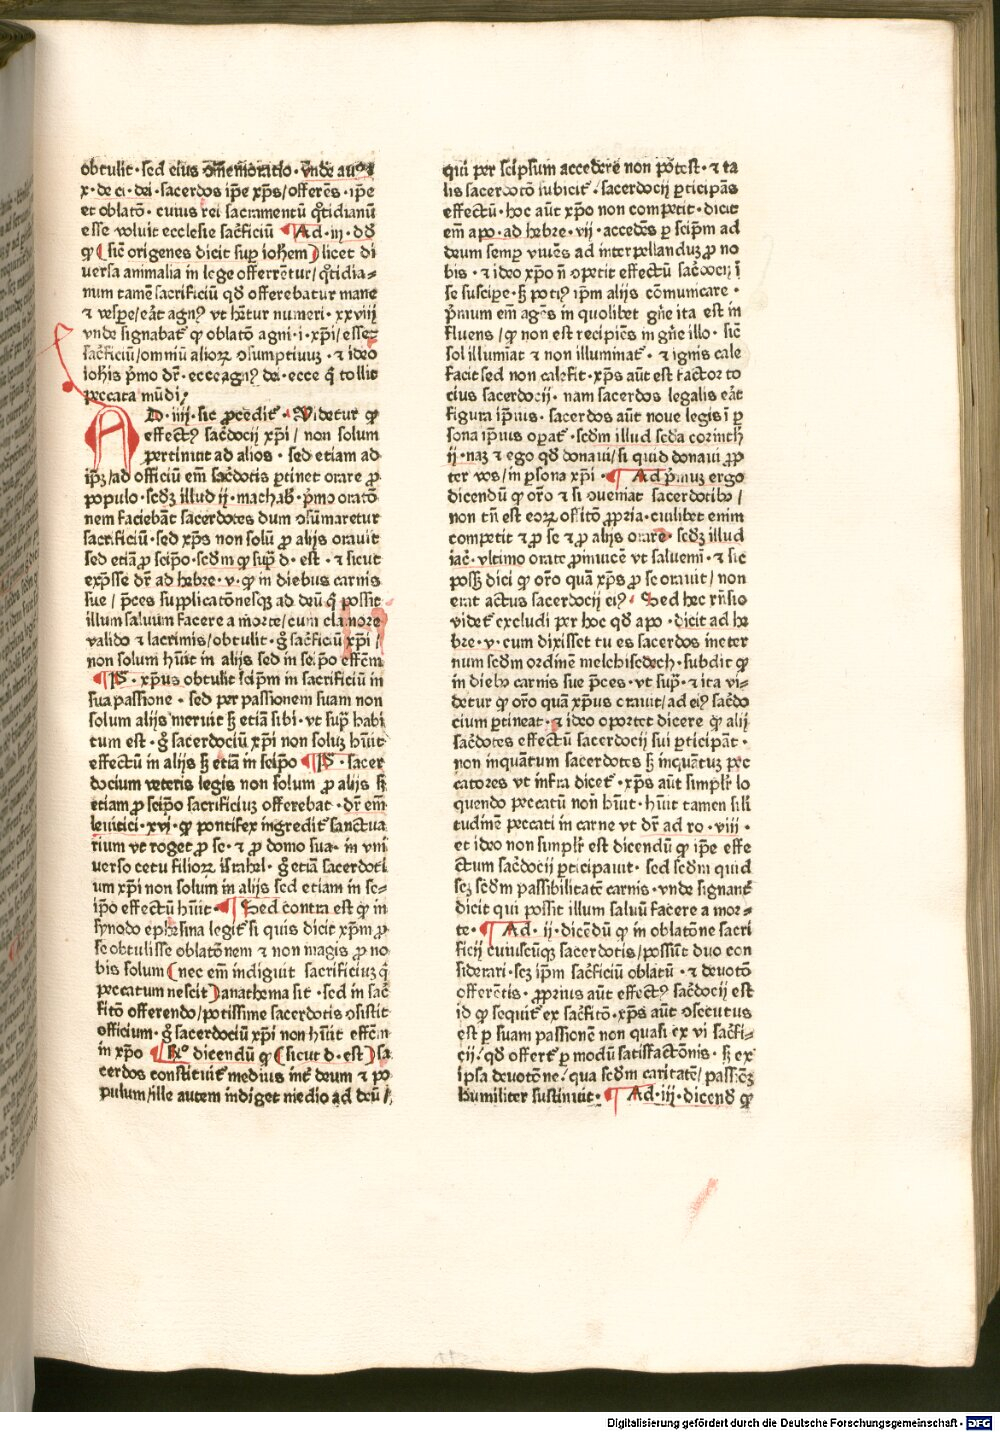 obtulit · sed eius ↄmemoratio · vnde au⁹ ī
x · de ci · dei · sacerdos ip̄e xp̄s / offerēs · ip̄e
et oblatō · cuius rei sacramentū q̄tidianū
esse voluit ecclesie sac̄ficiū ¶ Ad · iij · dd̄
ꝙ (sic̄ origenes dicit suꝑ ioh̄em) licet di
uersa animalia in lege offerrētur / q̄tidia⸗
num tamē sacrificiū qd̄ offerebatur mane
⁊ vesꝑe / eāt agn⁹ vt hr̄tur numeri · xxviij
vnde signabat̄ ꝙ oblatō agni · i · xp̄i / esset
sac̄ficiū / omniū alioꝝ ↄsumptiuuꝫ · ⁊ ideo
ioh̄is p̄mo dr̄ · ecce agn⁹ dei · ecce q̄ tollit
peccata mūdi /
AD · iiij · sic ꝓcedit̄ · Videtur ꝙ
effect⁹ sac̄docij xp̄i / non solum
pertiniuit ad alios · sed etiam ad
ip̄ꝫ / ad officiū em̄ sac̄dotis ꝑtinet orare ꝓ
populo · scd̄ꝫ illud ij · machab̄ · p̄mo oratō
nem faciebāt sacerdotes dum ↄsūmaretur
sacrificiū · sed xp̄s non solū ꝓ alijs orauit
sed etiā ꝓ seip̄o · scd̄m ꝙ sup̄ d · est · ⁊ sicut
exp̄sse dr̄ ad hebre · v · ꝙ in diebus carnis
sue / p̄ces supplicatōnesqꝫ ad deū q̄ possit
illum saluum facere a morte / cum clamore
valido ⁊ lacrimis / obtulit · g̊ sac̄ficiū xp̄i /
non solum h̄uit in alijs sed in seip̄o effēm
¶ P̄ · xp̄us obtulit seip̄m in sacrificiū in
sua passione · sed per passionem suam non
solum alijs meruit sꝫ etiā sibi · vt sup̄ habi
tum est · g̊ sacerdociū xp̄i non soluꝫ h̄uit
effectū in alijs sꝫ etiā in seip̄o ¶ P̄ · sacer
docium veteris legis non solum ꝓ alijs sꝫ
etiam ꝓ seip̄o sacrificiuꝫ offerebat · dr̄ em̄
leuitici · xvj · ꝙ pontifex ingredit̄ sanctua
rium vt roget ꝓ se · ⁊ ꝓ domo sua · in vni
uerso cetu filioꝝ israhel · g̊ etiā sacerdoti
um xp̄i non solum in alijs sed etiam in se⸗
ip̄o effectū h̄uit · ¶ Sed contra est ꝙ in
synodo ephesina legit̄ si quis dicit xp̄m ꝓ
se obtulisse oblatōnem ⁊ non magis ꝓ no
bis solum (nec em̄ indiguit sacrificiuꝫ q̄
peccatum nescit) anathema sit · sed in sac̄
fitō offerendo / potissime sacerdotis ↄsistit
officium · g̊ sacerdociū xp̄i non h̄uit effēm
in xp̄o ¶ R° dicendū ꝙ (sicut d · est) sa
cerdos constituit̄ medius int̄ deum ⁊ po
pulum / ille autem indiget medio ad deū /
qui per seipsum accedere non pōtest · ⁊ ta
lis sacerdotō subicit̄ / sacerdocij ꝑticipās
effectū · hoc aūt xp̄o non competit · dicit
em̄ apo · ad hebre · vij · accedēs ꝑ seip̄m ad
deum semꝑ viuēs ad interpellanduꝫ ꝓ no
bis · ⁊ ideo xp̄o nō ↄpetit effectū sac̄docij ī
se suscipe · sꝫ poti⁹ ip̄m alijs cōmunicare ·
p̄mum em̄ agēs in quolibet gn̄e ita est in
fluens / ꝙ non est recipiēs in gn̄e illo · sic̄
sol illumiat ⁊ non illuminat̄ · ⁊ ignis cale
facit sed non calefit · xp̄s aūt est factor to
cius sacerdocij · nam sacerdos legalis eāt
figura ip̄ius · sacerdos aūt noue legis ī ꝑ
sona ip̄ius oꝑat̄ · scd̄m illud scd̄a corinth
ij · naꝫ ⁊ ego qd̄ donaui / si quid donaui ꝓp
ter vos / in ꝑsona xp̄i · ¶ Ad p̄muꝫ ergo
dicendū ꝙ or̄o ⁊ si ↄueniat sacerdotibꝰ /
non tn̄ est eoꝝ offitō ꝓpria · cuilibet enim
competit ⁊ ꝓ se ⁊ ꝓ alijs orare · scd̄ꝫ illud
iac̄ · vltimo orate ꝓ inuicē vt saluemī · ⁊ sic
possꝫ dici ꝙ or̄o quā xp̄s ꝓ se orauit / non
erat actus sacerdocij ei⁹ · Sed hec rn̄sio
videt̄ excludi per hoc qd̄ apo · dicit ad he
bre · v · cum dixisset tu es sacerdos in eter
num scd̄m ordinē melchisedech · subdit ꝙ
in diebꝰ carnis sue p̄ces · vt sup̄ · ⁊ ita vi⸗
detur ꝙ or̄o quā xp̄us orauit / ad ei⁹ sac̄do
cium ꝑtineat · ⁊ ideo oportet dicere ꝙ alij
sac̄dotes effectū sacerdocij sui ꝑticipāt ·
non inquātum sacerdotes sꝫ inquātuꝫ pec
catores vt infra dicet̄ · xp̄s aūt simplr̄ lo
quendo peccatū non h̄uit · h̄uit tamen sili
tudinē peccati in carne vt dr̄ ad ro · viij ·
et ideo non simplr̄ est dicendū ꝙ ip̄e effe
ctum sac̄docij ꝑticipauit · sed scd̄m quid
scꝫ scd̄m passibilitatē carnis · vnde signant̄
dicit qui possit illum saluū facere a mor⸗
te · ¶ Ad · ij · dicēdū ꝙ in oblatōne sacri
ficij cuiuscūqꝫ sacerdotis / possūt duo con
siderari · scꝫ ip̄m sac̄ficiū oblatū · ⁊ deuotō
offerētis · ꝓprius aūt effect⁹ sac̄docij est
id ꝙ sequit̄ ex sac̄fitō · xp̄s aūt ↄsecutus
est ꝑ suam passionē non quasi ex vi sac̄fi⸗
cij / qd̄ offert̄ ꝑ modū satisfactōnis · sꝫ ex
ipsa deuotōne / qua scd̄m caritatē / passiōꝫ
humiliter sustinuit · ¶ Ad · iij · dicend̄ ꝙ
Digitalisierung gefördert durch die Deutsche Forschungsgemeinschaft · DFG